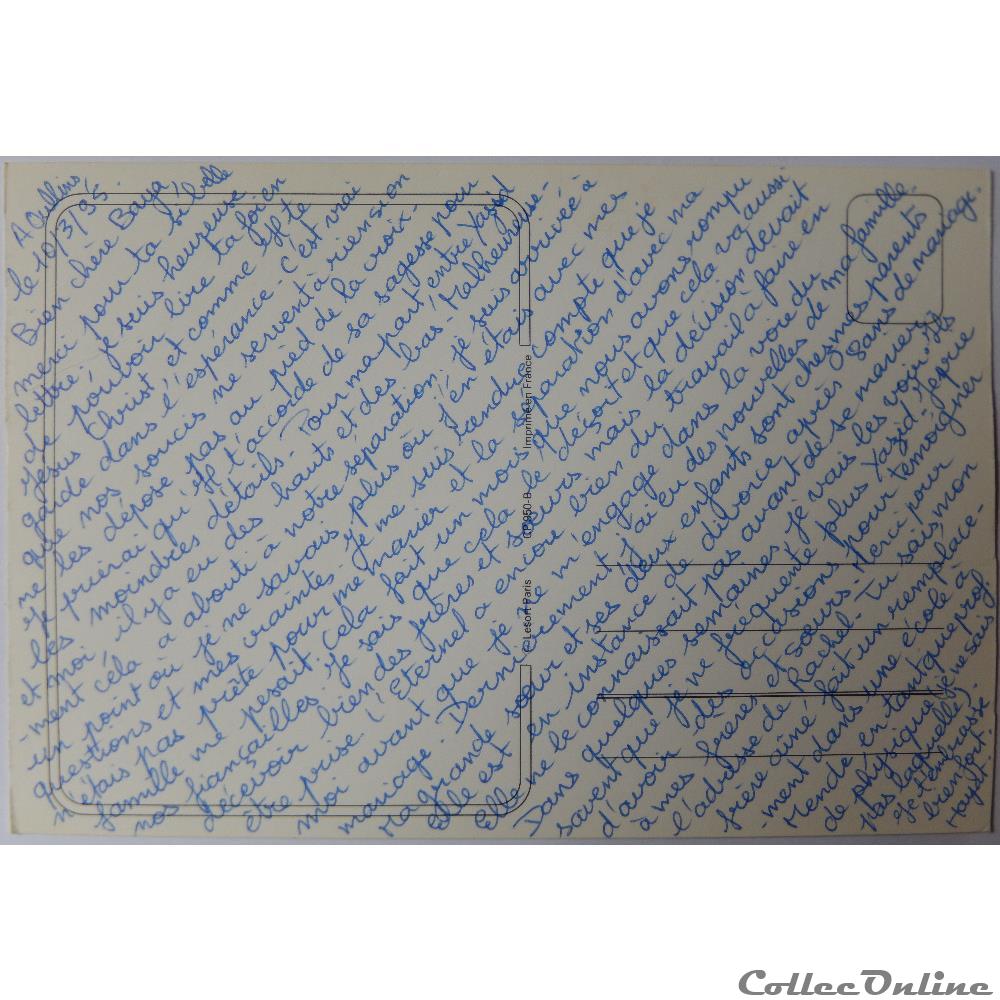 A Oullins,
le 10/3/95.
Bien chère Baya,
merci pour ta si belle
lettre. je suis heureuse
de pouvoir lire ta foi en
Jésus Christ et comme Il te
garde dans l'espérance. C'est vrai
que nos soucis ne servent à rien si on
ne les dépose pas au pied de la croix-
Je prierai qu'Il t'accorde de sa sagesse pour
les moindres détails. Pour ma part, entre Yazid
et moi il y a eu des hauts et des bas- Malheureuse-
ment cela a abouti a notre séparation. je suis arrivée à
un point où je ne savais plus où j'en étais avec mes
questions et mes craintes. je me suis rendue compte que je
n'étais pas prête pour me marier et la séparation d'avec ma
famille me pesait. Cela fait un mois que nous avons rompu
nos fiançailles. je sais que cela le déçoit et que cela va aussi
décevoir bien des frères et soeurs mais la décision devait
être prise. L'Eternel a encore bien du travail à faire en
moi avant que je ne m'engage dans la voie du
mariage. Dernièrement j'ai eu des nouvelles de ma famille.
Ma grande soeur et ses deux enfants sont chez mes parents
Elle est en instance de divorce après 9 ans de mariage.
Elle ne le connaissait pas avant de se marier.
Dans quelques semaines je vais les voir. Ils
savent que je ne fréquente plus Yazid. J'espère
d'avoir des occasions pour témoigner
à mes frères et soeurs- Merci pour
l'adresse de Rachel. Tu sais, mon
frère ainé, fait un remplace-
-ment dans une école à
Mende en tant que prof.
de physique, je ne sais
pas laquelle.
je t'embrasse
bien fort.
Hayet.
© Lesort Paris CP 950-B Imprimé en France
CollecOnline